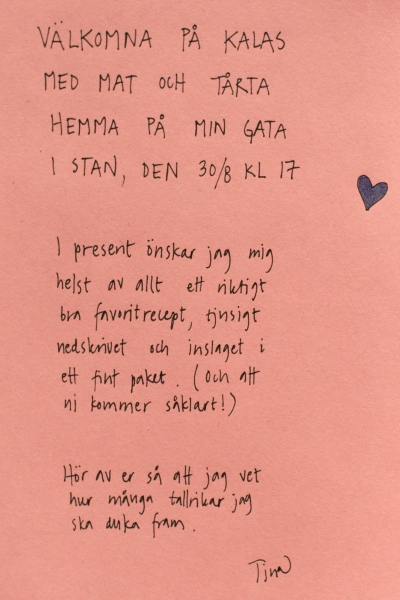 VÄLKOMNA PÅ KALAS
MED MAT OCH TÅRTA
HEMMA PÅ MIN GATA
I STAN, DEN 30/8 KL 17
I present önskar jag mig
helst av allt ett riktigt
bra favoritrecept, tjusigt
nedskrivet och inslaget i
ett fint paket. (Och att
ni kommer såklart!)
Hör av er så att jag vet
hur många tallrikar jag
ska duka fram.
Tina